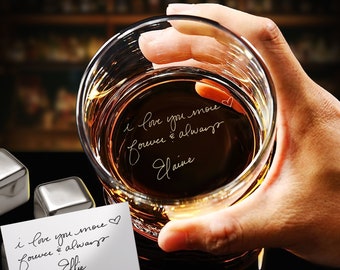 i love you more ♡
forever & always
Elaine
i love you more ♡
forever & always
Ellie